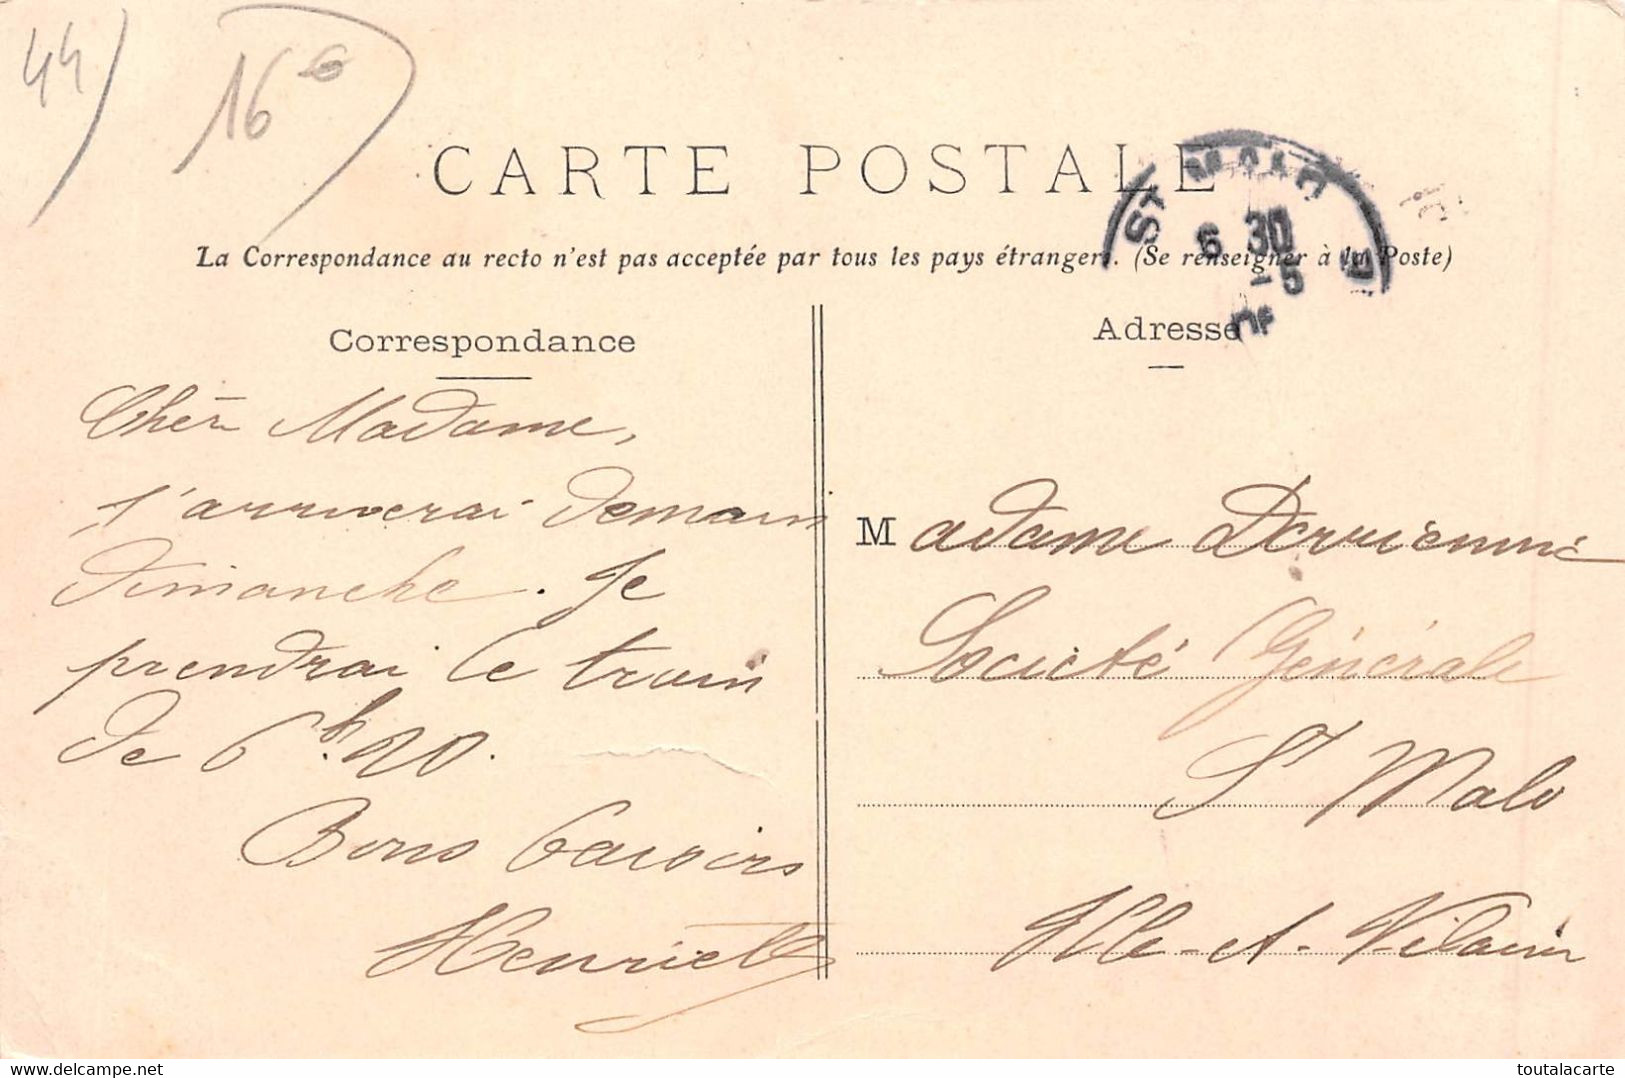 44
16€
CARTE POSTALE
La Correspondance au recto n'est pas acceptée par tous les pays étrangers. (Se renseigner à la Poste)
ST MALO
6 30
-5
Correspondance
Chère Madame,
J'arriverai demain
Dimanche. Je
prendrai le train
de 6h.20.
Bons baisers
Henriette
Adresse
Madame Derrienne
Société Générale
St Malo
Ille-et-Vilaine
www.delcampe.net
toutalacarte